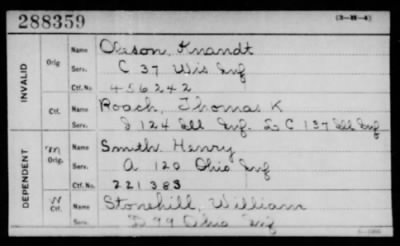 288359
(3-H-4)
INVALID
Orig. Name Oleson, Knandt
Serv. C 37 Wis Inf
Ctf. No. 456242
Ctf. Name Roach, Thomas K
Serv. I 124 Ill Inf. & C 137 Ill Inf
DEPENDENT
Orig. Name Smith Henry
Serv. A 120 Ohio Inf
Ctf. No. 221383
Ctf. Name Stonehill, William
Serv. D 99 Ohio Inf